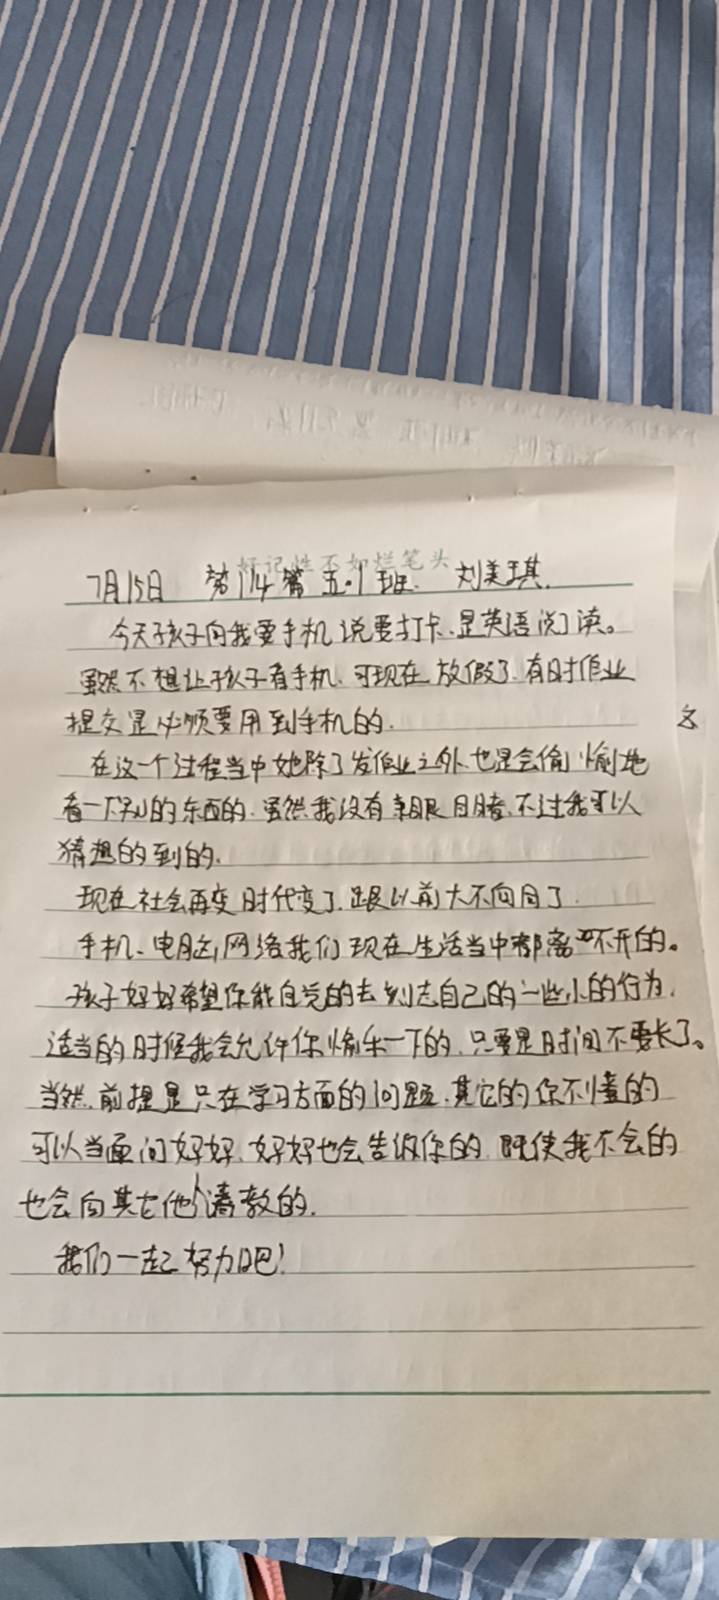 好记性不如烂笔头
7月15日 第114篇 五.1班. 刘美琪.
今天孩子向我要手机说要打卡.是英语阅读。
虽然不想让孩子看手机.可现在放假了.有时作业
提交是必须要用到手机的.
在这一个过程当中她除了发作业之外.也是会偷偷地
看一下别的东西的.虽然我没有亲眼目睹.不过我可以
猜想的到的.
现在社会再变时代变了.跟以前大不向同了.
手机、电脑网络我们现在生活当中都离不开的。
孩子好好希望你能自觉的去
自己的一些小的行为.
适当的时候我会允许你愉乐一下的.只要是时间不要长了。
当然.前提是只在学习方面的问题.其它的你不懂的
可以当面问好好.好好也会告诉你的.既使我不会的
也会向其它他人请教的.
我们一起努力吧!